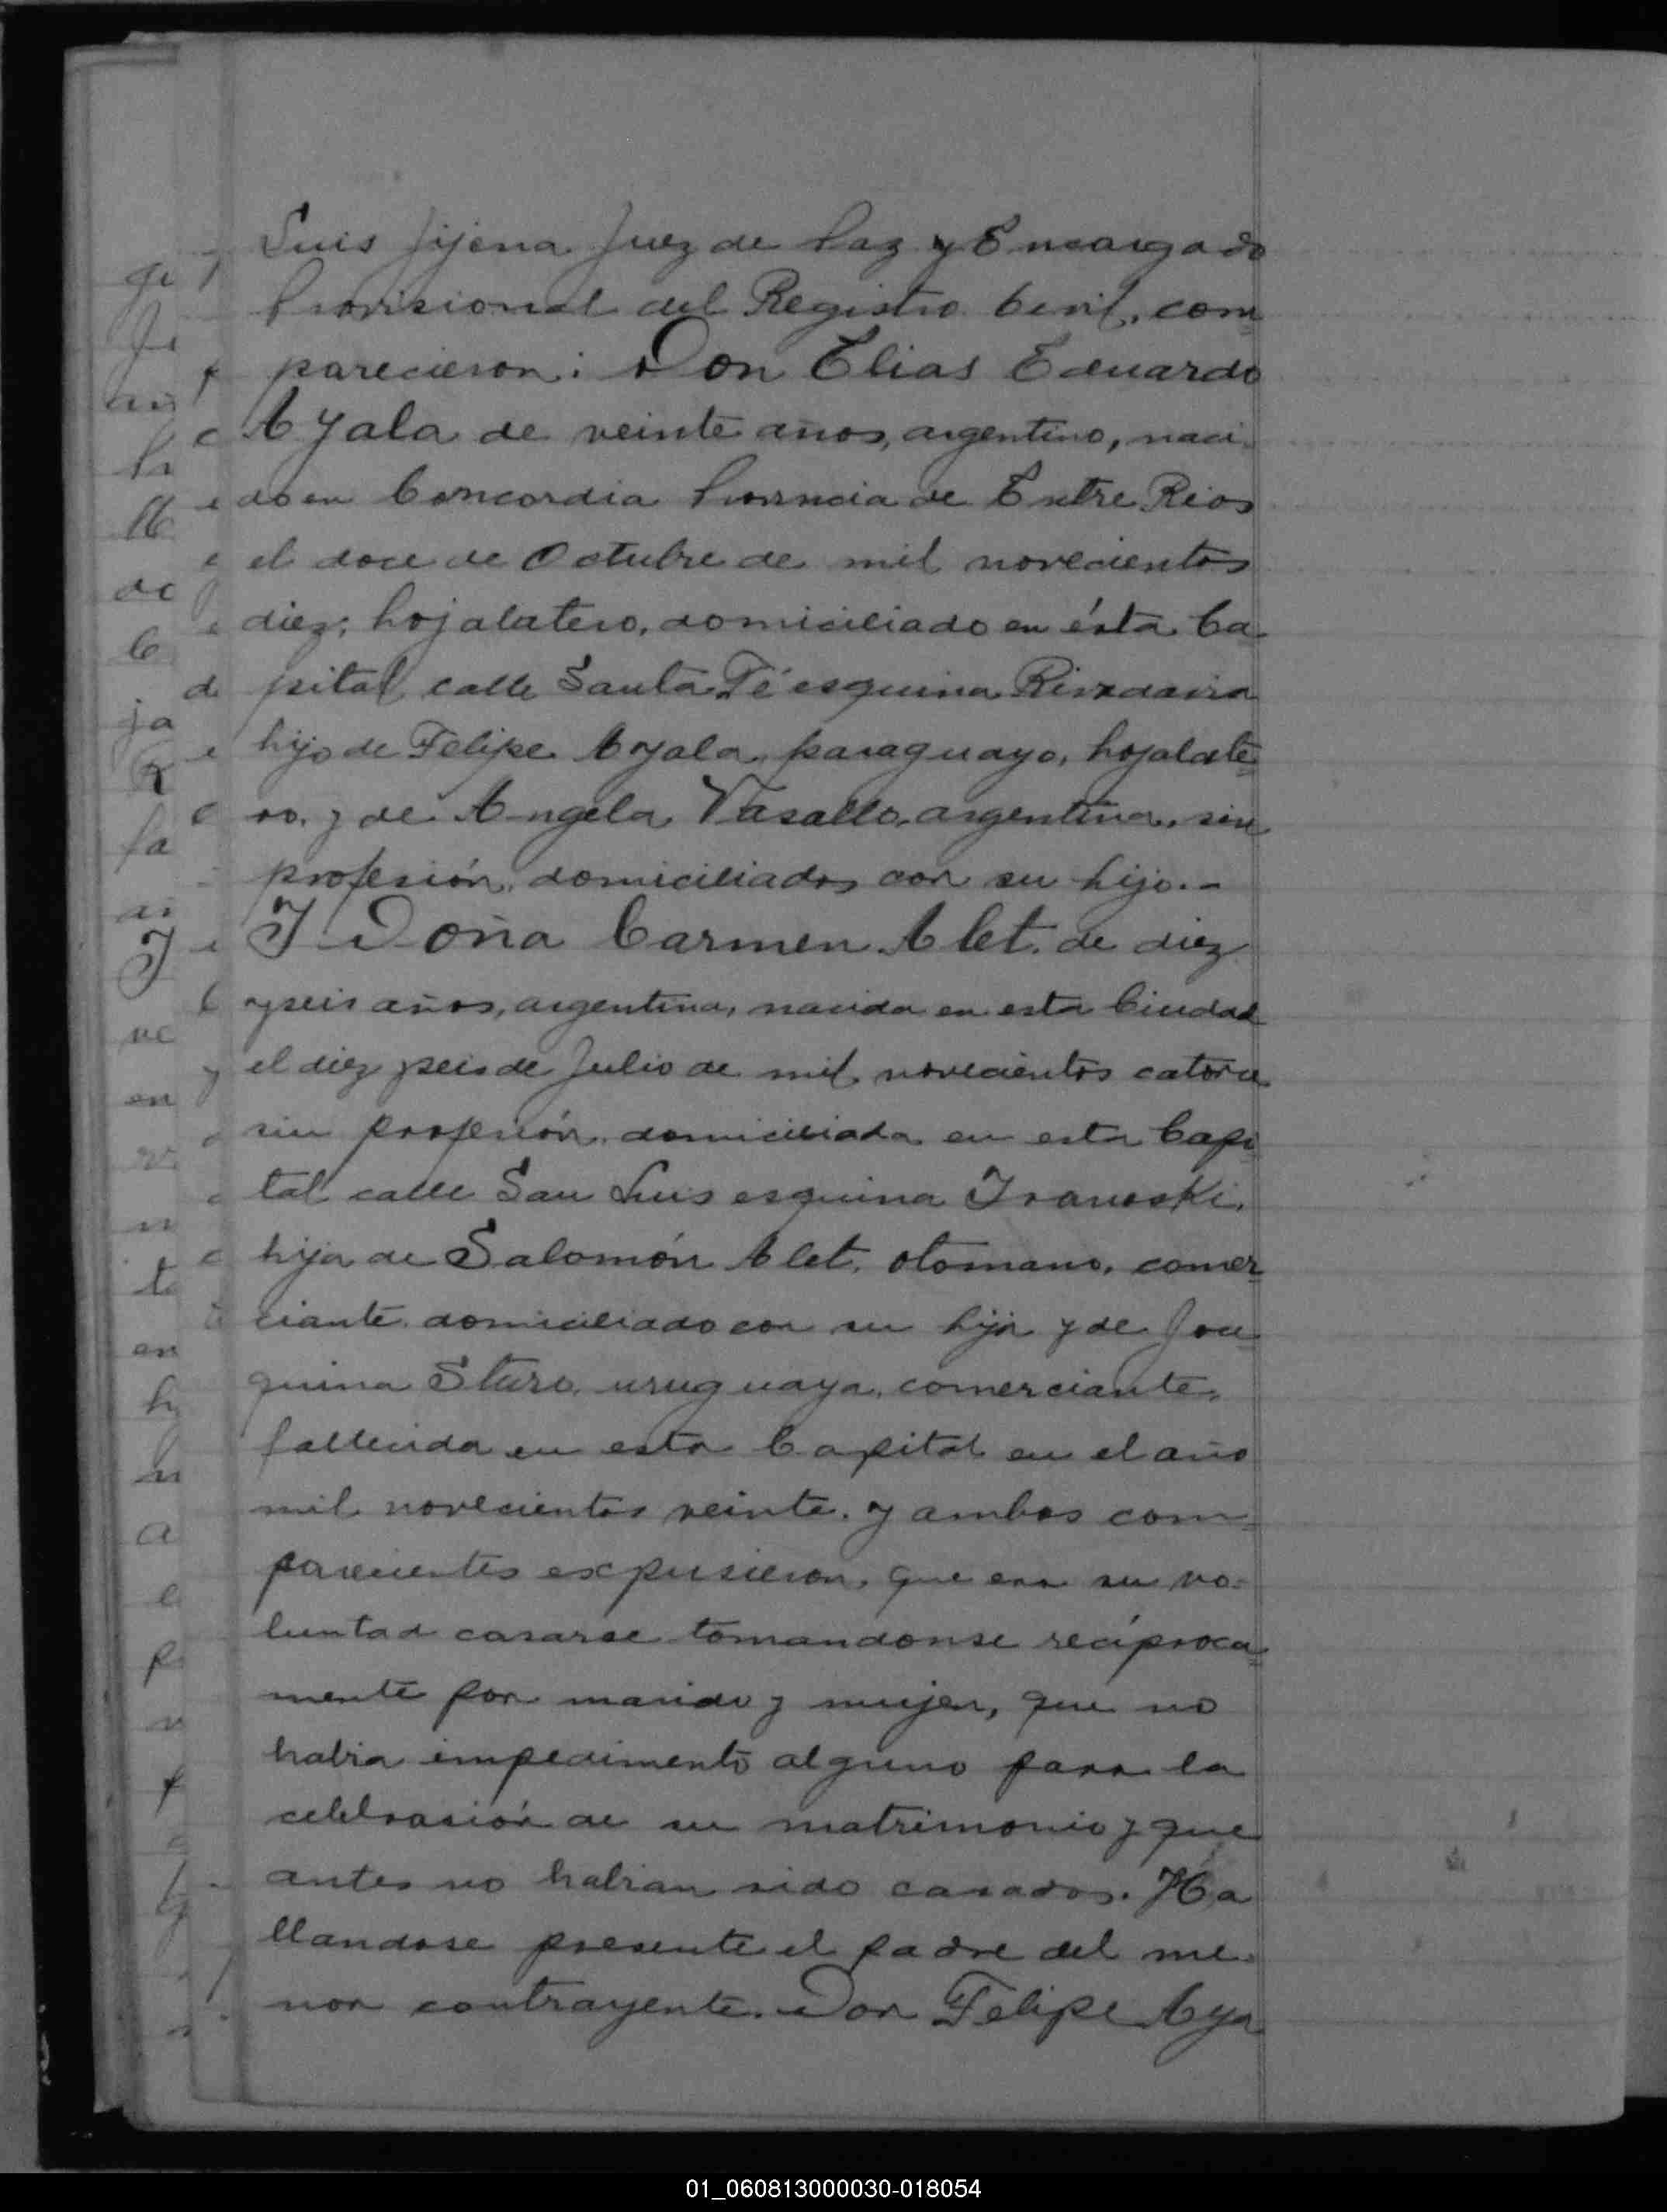 Luis Jijena Juez de Paz y Encargado
Provisional del Registro Civil, com
parecieron: Don Elias Eduardo
Ayala de veinte años, argentino, naci
do en Concordia Provincia de Entre Rios
el doce de Octubre de mil novecientos
diez, hojalatero, domiciliado en ésta Ca
pital calle Santa Fé esquina Rivadavia
hijo de Felipe Ayala, paraguayo, hojalate
ro, y de Angela Vasallo, argentina, sin
profesión, domiciliados con su hijo.-
Y Doña Carmen Alet. de diez
y seis años, argentina, nacida en esta Ciudad
el diez y seis de Julio de mil novecientos catorce
sin profesión, domiciliada en esta Capi
tal calle San Luis esquina Ivanoski,
hija de Salomón Alet, otomano, comer
ciante domiciliado con su hija y de Joa
quina Sturo, uruguaya, comerciante,
fallecida en esta Capital en el año
mil novecientos veinte. y ambos com
parecientes expusieron, que era su vo
luntad casarse tomandonse recíproca
mente por marido y mujer, que no
habia impedimento alguno para la
celebrasión de su matrimonio y que
antes no habian sido casados. Ha
llandose presente el padre del me
nor contrayente. Don Felipe Aya
01_060813000030-018054